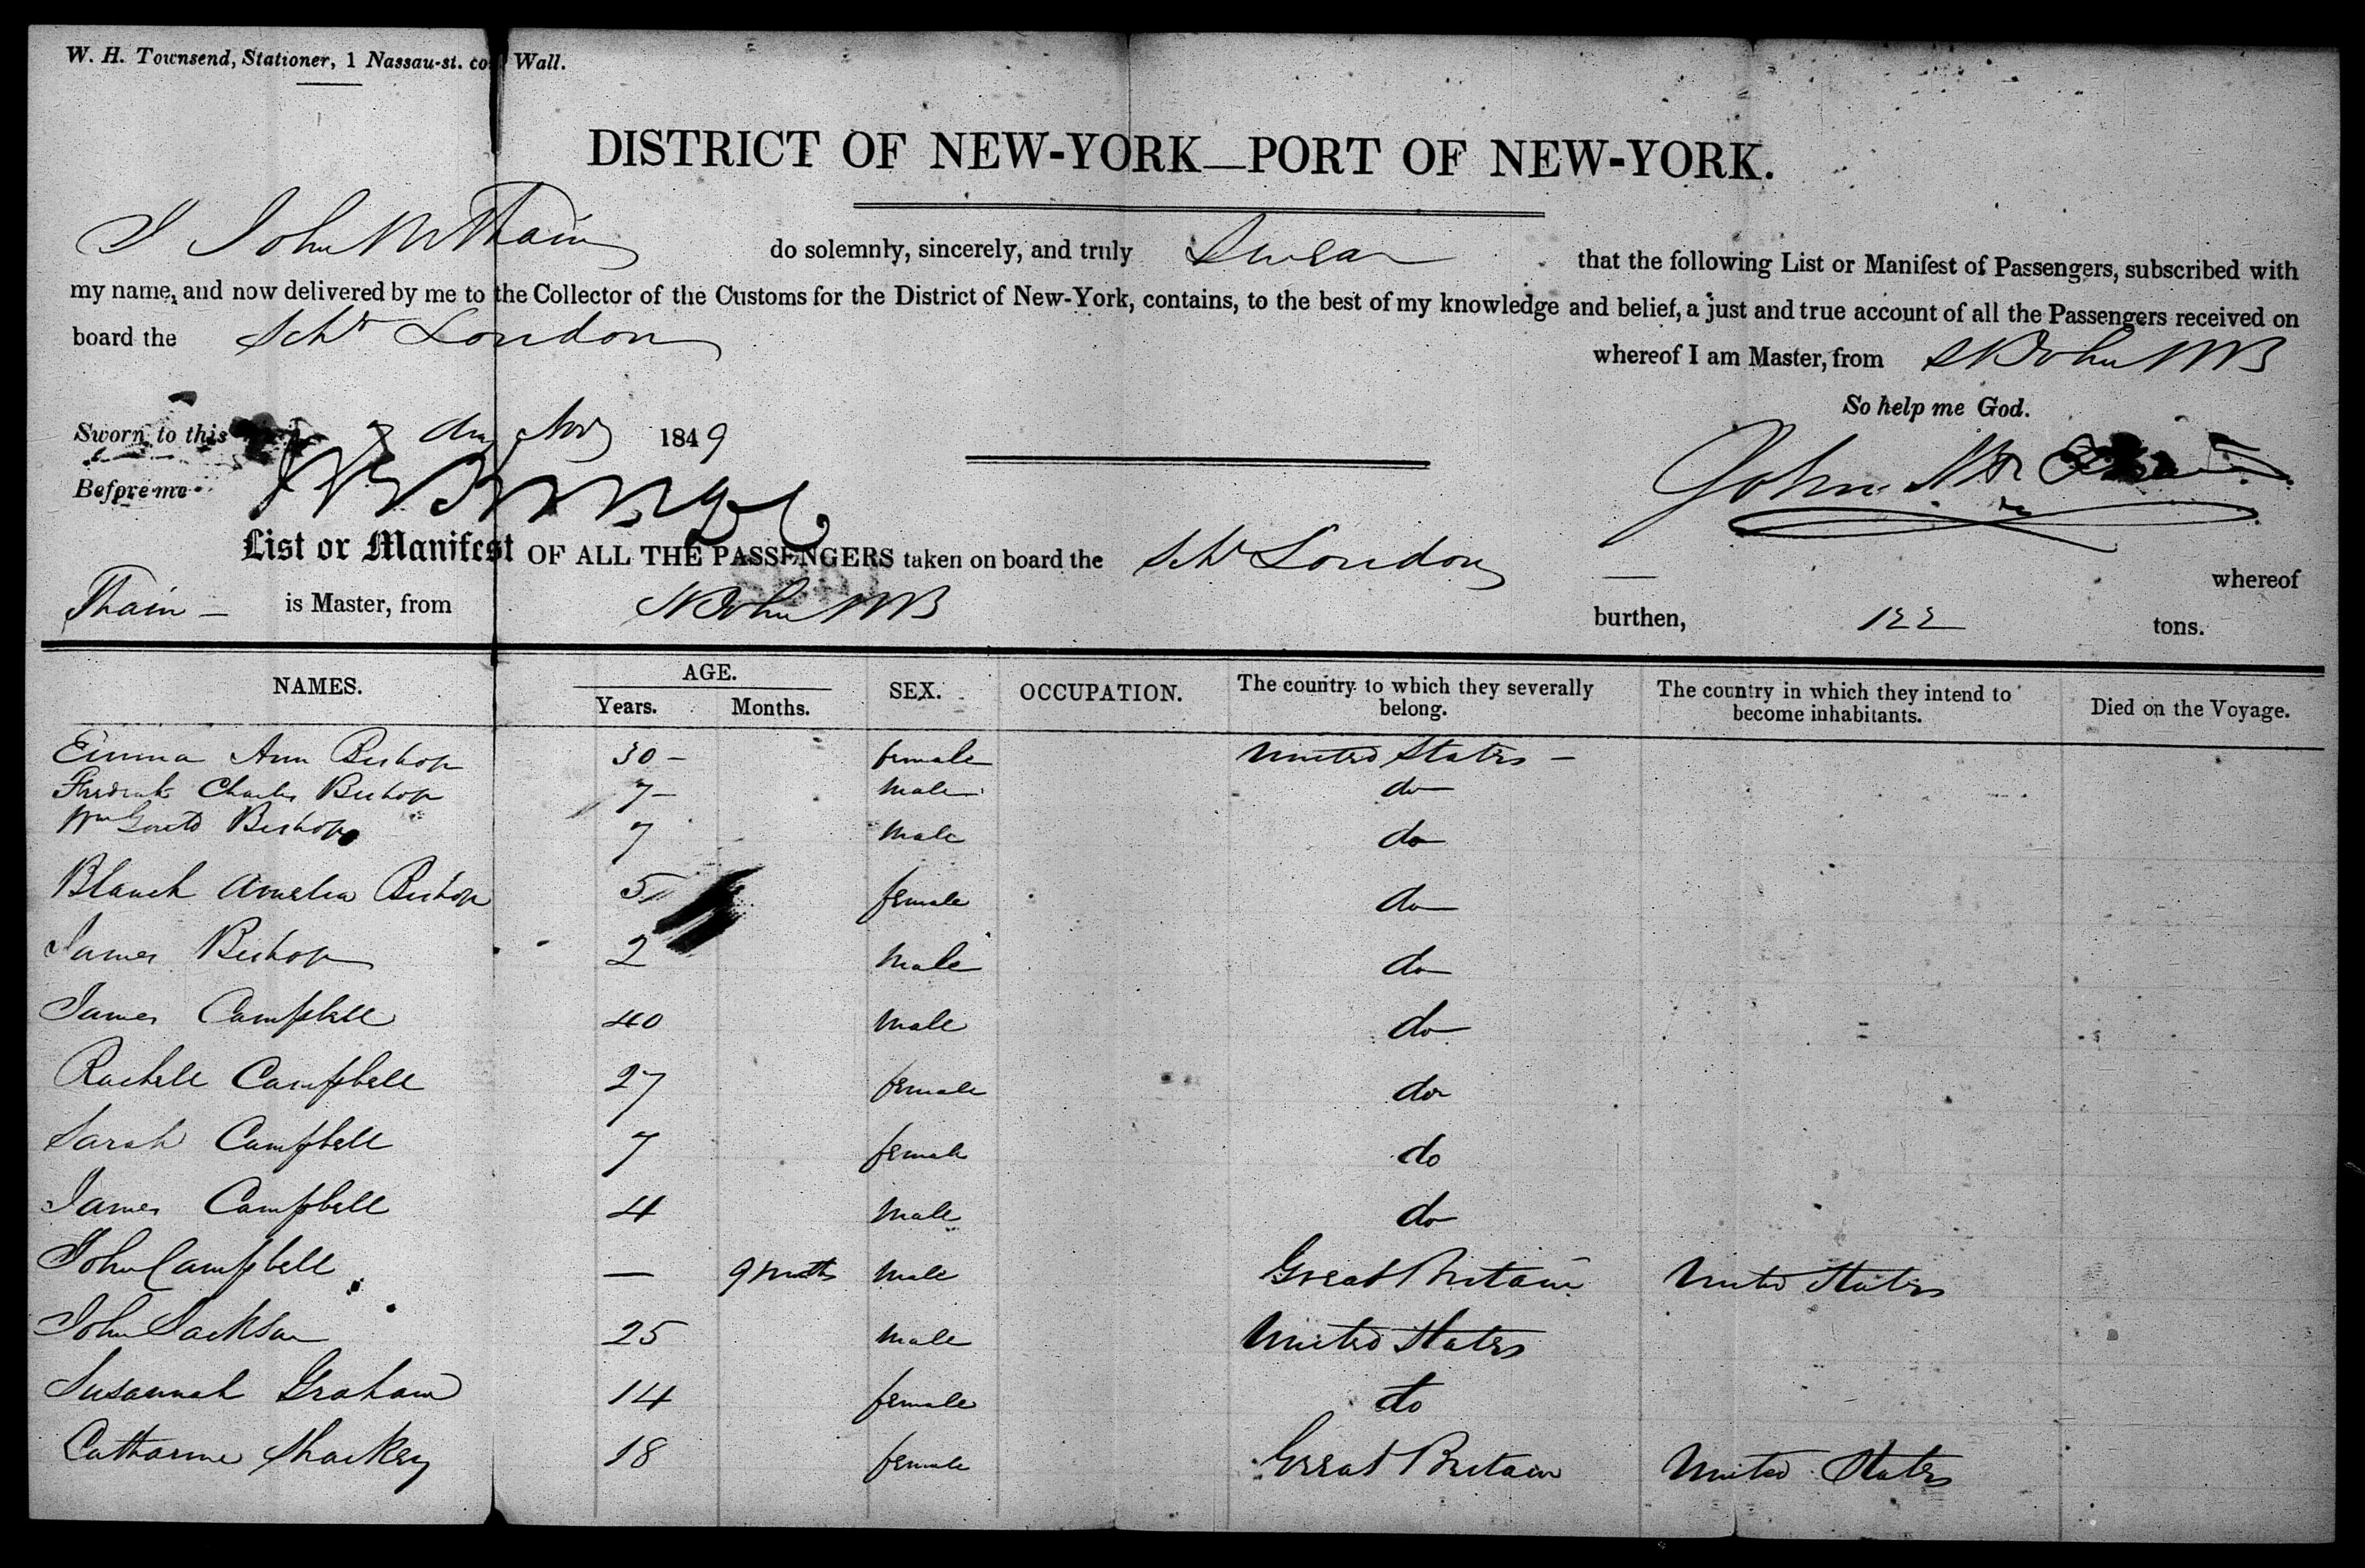 W. H. Townsend, Stationer, 1 Nassau-st. co Wall.
DISTRICT OF NEW-YORK—PORT OF NEW-YORK.
I John Thain do solemnly, sincerely, and truly Swear that the following List or Manifest of Passengers, subscribed with
my name, and now delivered by me to the Collector of the Customs for the District of New-York, contains, to the best of my knowledge and belief, a just and true account of all the Passengers received on
board the Schr London whereof I am Master, from St John NB
So help me God.
Sworn to this 7 day Nov 1849
Before me
John
List or Manifest OF ALL THE PASSENGERS taken on board the Schr London whereof
Thain — is Master, from St John NB burthen, 122 tons.
NAMES. AGE. SEX. OCCUPATION. The country to which they severally belong. The country in which they intend to become inhabitants. Died on the Voyage.
Years. Months.
Emma Ann Bishop 30 — female United States —
Fredrick Charles Bishop 7 — male do
Wm Bishop 7 male do
Blanch Amelia Bishop 5 female do
James Bishop 2 male do
James Campbell 40 male do
Rachell Campbell 27 female do
Sarah Campbell 7 female do
James Campbell 4 male do
John Campbell — 9 months male Great Britain United States
John Jackson 25 male United States
Susannah Graham 14 female do
Catharine Sharkey 18 female Great Britain United States